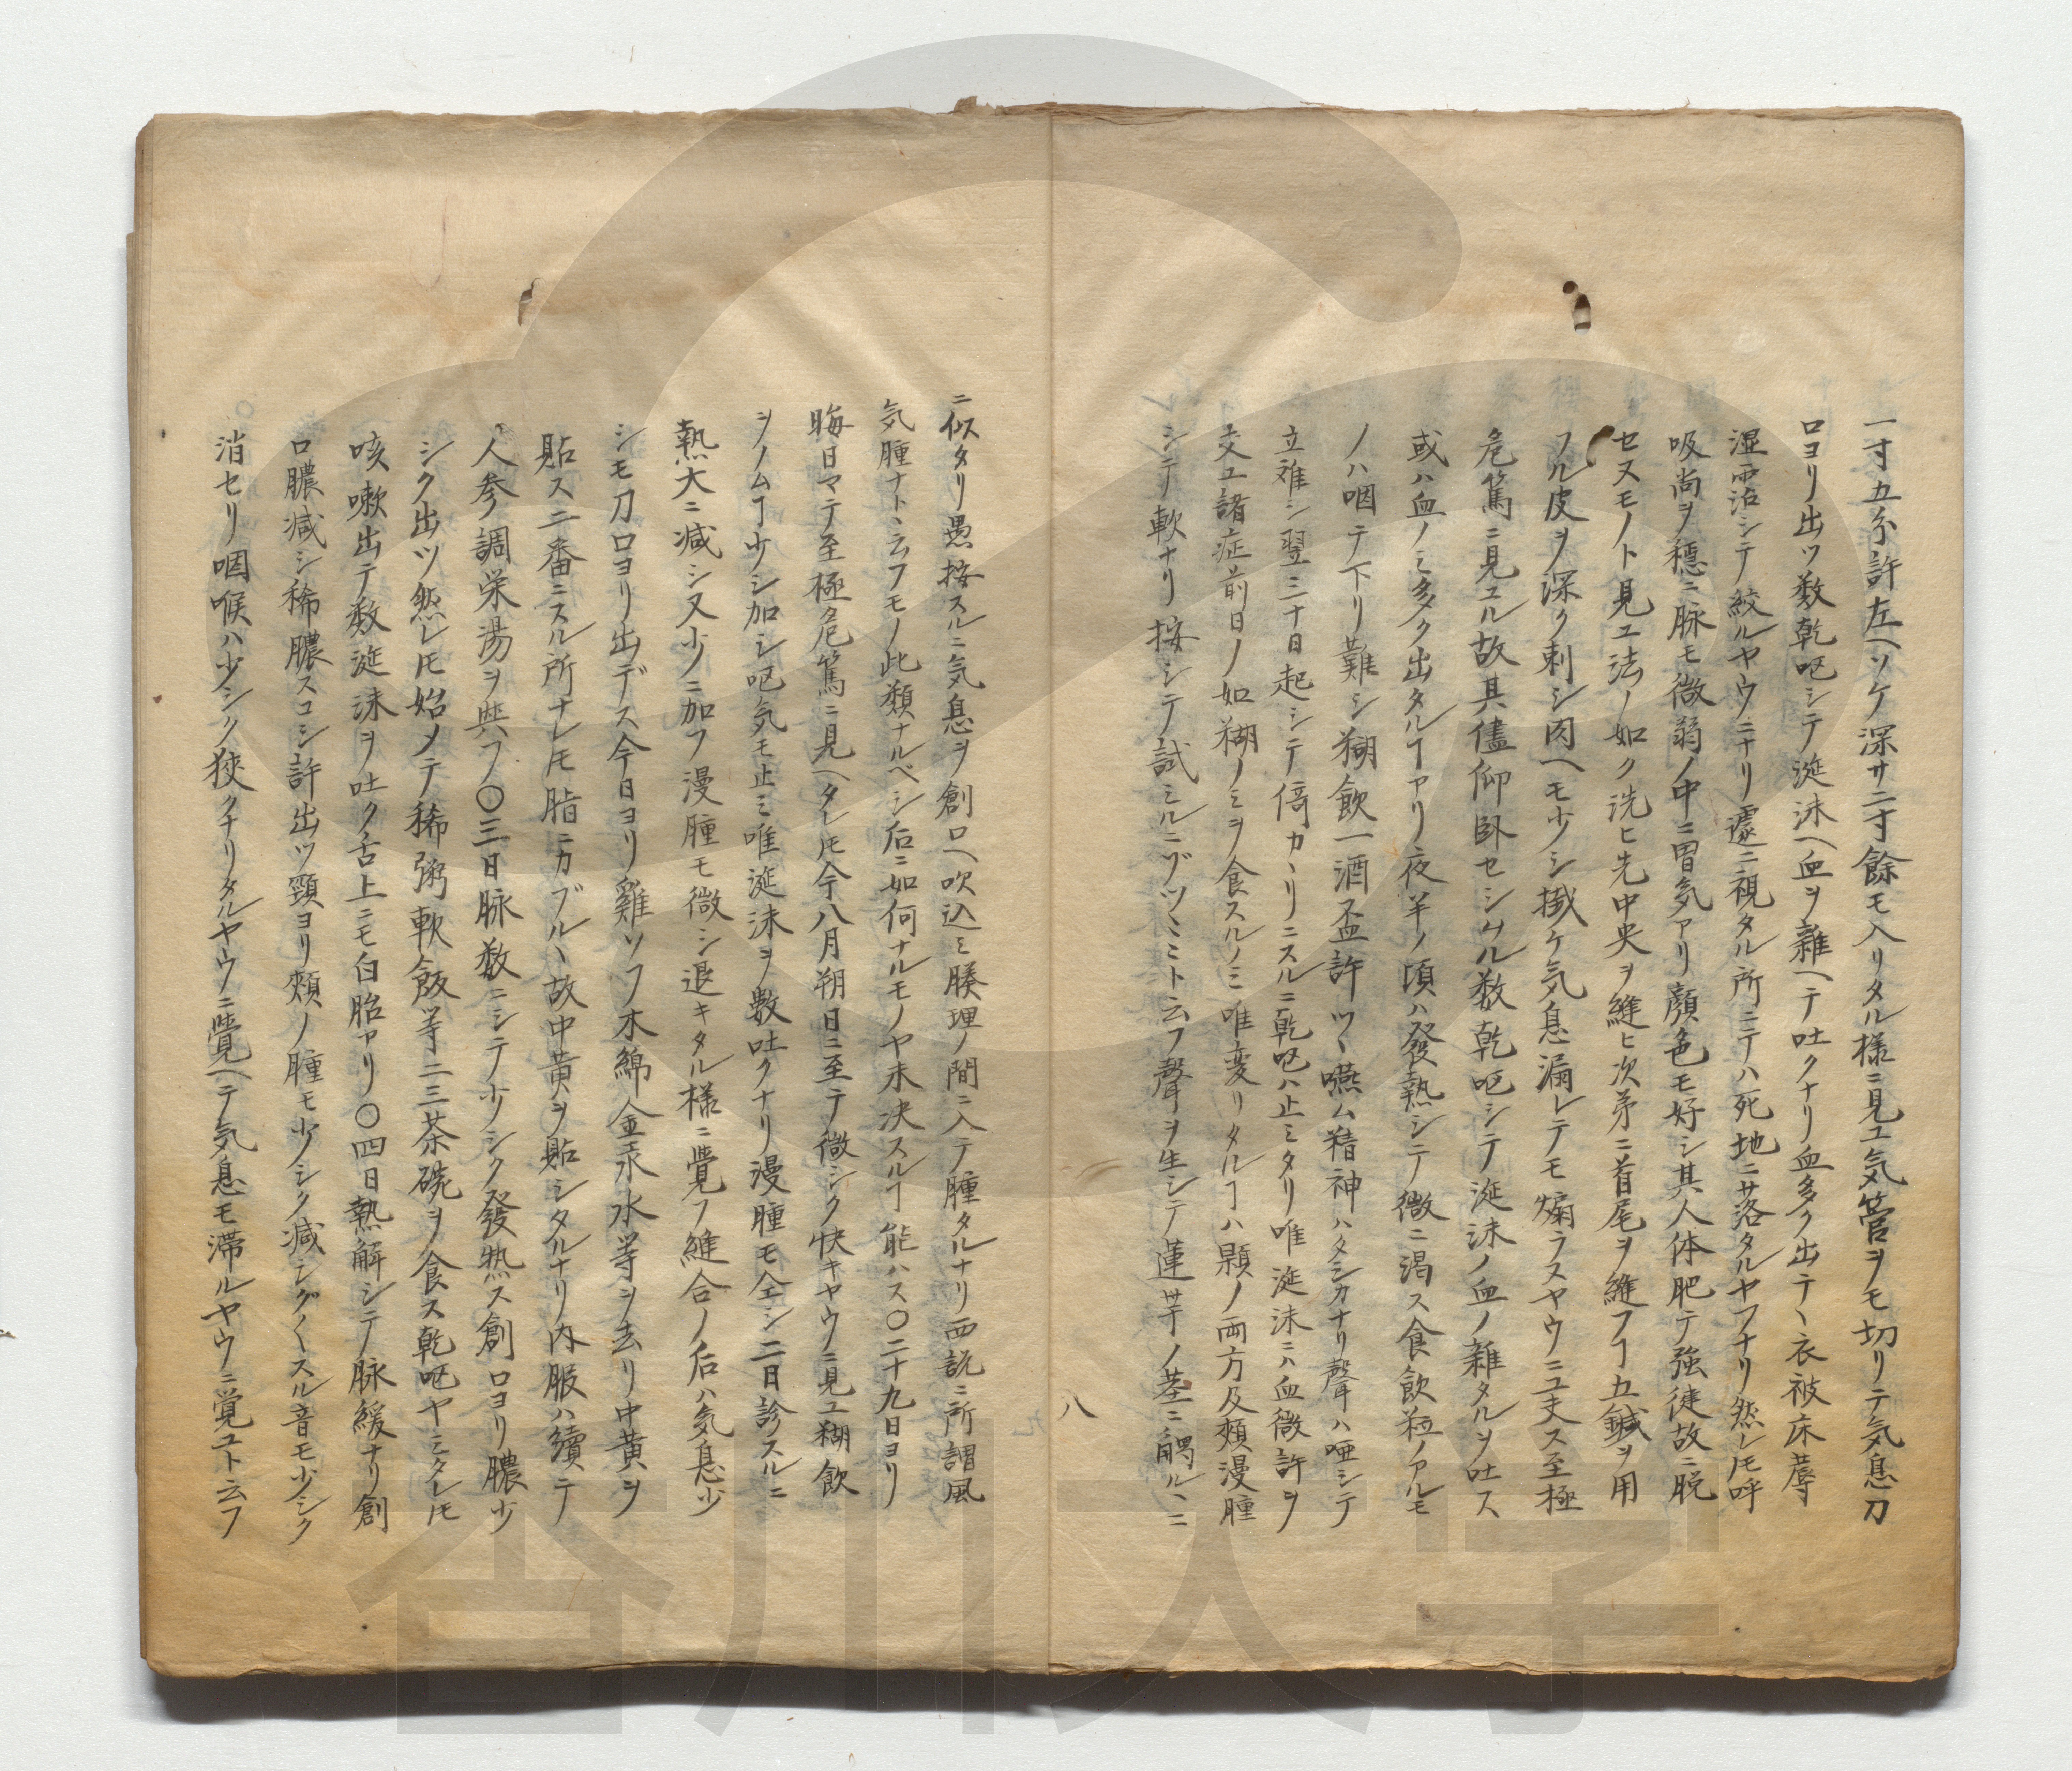 一寸五分許左ヘソケ深サ二寸餘モ入リタル様ニ見エ気管ヲモ切リテ気息刀
口ヨリ出ツ数乾呕シテ涎沫ヘ血ヲ雜ヘテ吐クナリ血多ク出テヽ衣被床蓐
湿霑シテ絞ルヤウニナリ遽ニ視タル所ニテハ死地ニサ落タルヤフナリ然レ𪜈呼
吸尚ヲ穏ニ脉モ微弱ノ中ニ胃気アリ顔色モ好シ其人体肥テ強徒故ニ脱
セヌモノト見エ法ノ如ク洗ヒ先中央ヲ縫ヒ次第ニ首尾ヲ縫フヿ五鍼ヲ用
フル皮ヲ深ク刺シ肉ヘモ少シ掛ケ気息漏レテモ煽ラスヤウニ工夫ス至極
危篤ニ見ユル故其儘仰卧セシムル数乾呕シテ涎沫ノ血ノ雜タルヲ吐ス
或ハ血ノミ多ク出タルヿアリ夜半ノ頃ハ發熱シテ微ニ渇ス食飲粒ノアルモ
ノハ咽テ下リ難シ糊飲一酒盃許ツヽ嚥ム精神ハタシカナリ聲ハ唖シテ
立難シ翌三十日起シテ倚カヽリニスルニ乾呕ハ止ミタリ唯涎沫ニハ血微許ヲ
交ユ諸症前日ノ如糊ノミヲ食スルノミ唯変リタルヿハ顋ノ両方及頬漫腫
シテ軟ナリ按シテ試ミルニブツヽヽト云フ聲ヲ生シテ蓮芋ノ茎ニ觸ルヽニ
八
ニ似タリ愚按スルニ気息ヲ創口ヘ吹込ミ腠理ノ間ニ入テ腫タルナリ西説ニ所謂風
気腫ナトヽ云フモノ此類ナルベシ后ニ如何ナルモノヤ未决スルヿ能ハス〇二十九日ヨリ
晦日マテ至極危篤ニ見ヘタレ𪜈今八月朔日ニ至テ微シク快キヤウニ見エ糊飲
ヲノムヿ少シ加シ呕気モ止ミ唯涎沫ヲ數吐クナリ漫腫モ全シ二日診スルニ
熱大ニ減シ又少ノニ加フ漫腫モ微シ退キタル様ニ覺フ縫合ノ后ハ気息少
シモ刀口ヨリ出デス今日ヨリ雞ソフ木綿金汞水等ヲ去リ中黄ヲ
貼ス二番ニスル所ナレ𪜈脂ニカブルヽ故中黄ヲ貼シタルナリ内服ハ續テ
人参調栄湯ヲ與フ〇三日脉数ニシテ少シク發热ス創口ヨリ膿少
シク出ツ然レ𪜈始メテ稀粥軟飯等二三茶碗ヲ食ス乾呕ヤミタレ𪜈
咳嗽出テ数涎沫ヲ吐ク舌上ニモ白胎アリ〇四日熱解シテ脉緩ナリ創
口膿減シ稀膿スコシ許出ツ頸ヨリ頬ノ腫モ少シク減シグ〱スル音モ少シク
消セリ咽喉ハ少シク狹クナリタルヤウニ覺ヘテ気息モ滞ルヤウニ覚ユト云フ